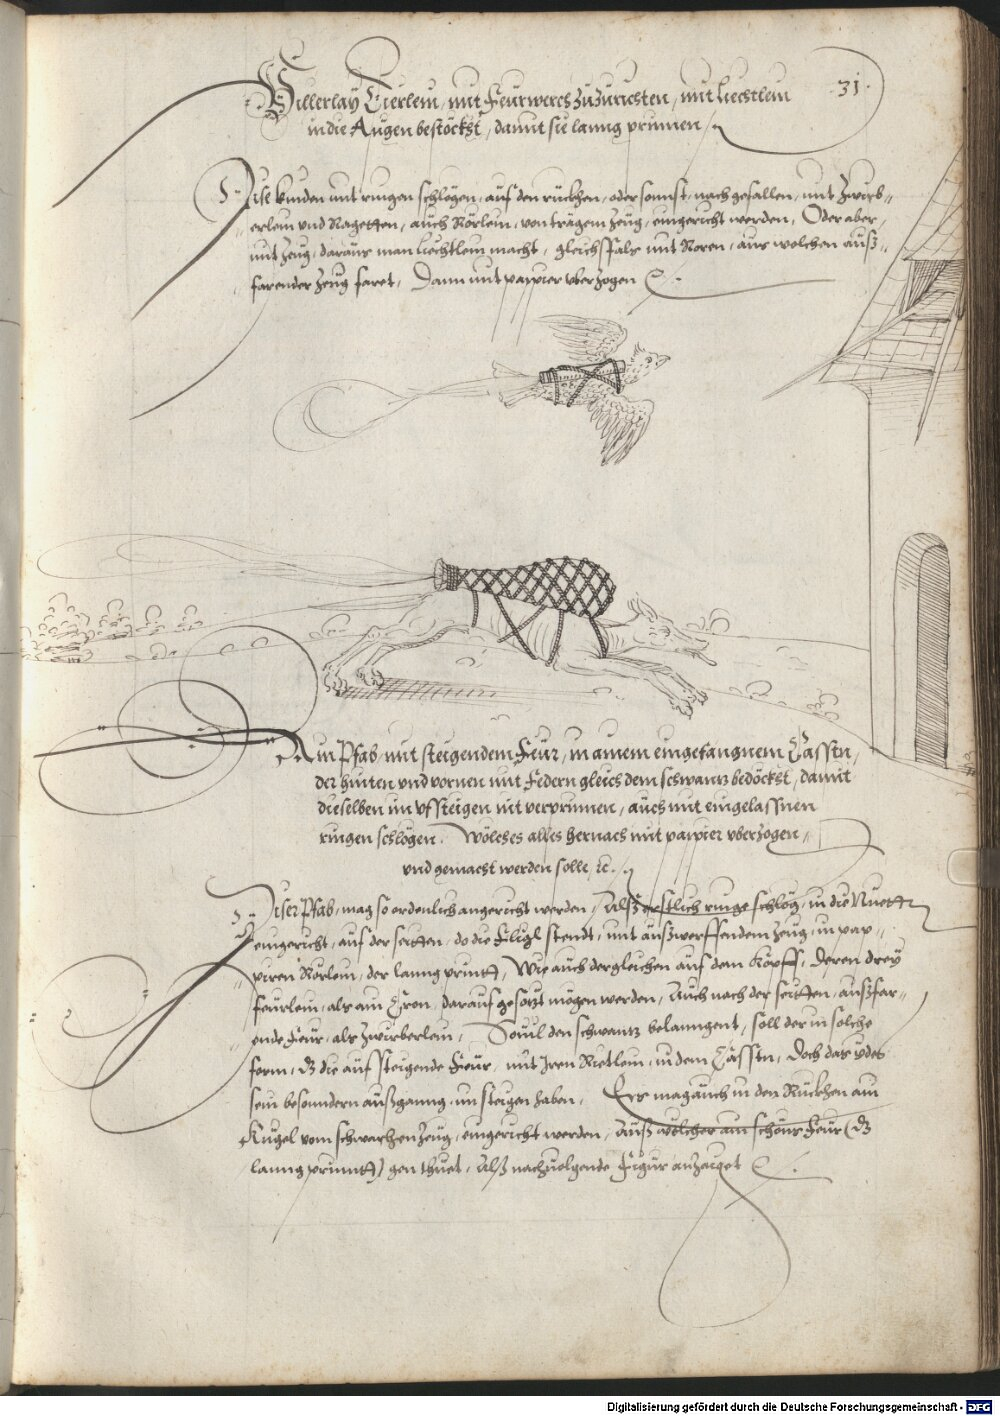 31.
Allerlaÿ Tierlein, mit Feurwerch zuzurichten, mit liechtlein
in die Augen bestöckht, damit sie lanng prinnen,
Dise künden mit ringen schlögen, auf den rückhen, oder sonnst, nach gefallen, mit Zwirb„
„erlein vnd Ragetten, auch Rörlein, von trägem Zeüg, eingericht werden, Oder aber,
mit Zeüg, daraus man liechtlein macht, gleichsfals mit Roren, aus welchen auß„
farender Zeüg faret, Dann mit pappier vberzogen
Ain Pfab, mit steigendem Feür, in ainem eingefangnem Casstn,
der hinten vnd vornen mit Federn gleich dem schwantz bedöckht, damit
dieselben im vfsteigen nit verprinnen, auch mit eingelassnen
ringen schlögen. Wölches alles hernach mit pappier vberzogen,
vnd gemacht werden solle, ꝛc.
Diser Pfab, mag so ordenlich angericht werden, Alß erstlich ringe schlög, in die Nuett
eingericht, auf der seitten, do die Fligl stendt, mit außwerffendem Zeüg, in pap„
piren Rörlein, der lanng printt, Wie auch dergleichen auf dem Kopff, deren dreÿ
feürlein, als ain Cron, darauf gesötzt mögen werden, Auch nach der seitten, außfar„
ende Feür, als Zwirberlein, Souil den schwantz belanngent, soll der in solche
form, dz die aufsteigende Feür, mit Iren Rietlein, in dem Casstn, doch das ÿdes
sein besonndern außganng, im steigen haben, Ers mag auch in den Rückhen ain
Kugel vom schwachen Zeüg, eingericht werden, Auß wölcher ain schöns Feür (dz
lanng prinntt) gen thuet, Alß nachuolgende Figur anzaiget
Digitalisierung gefördert durch die Deutsche Forschungsgemeinschaft - DFG